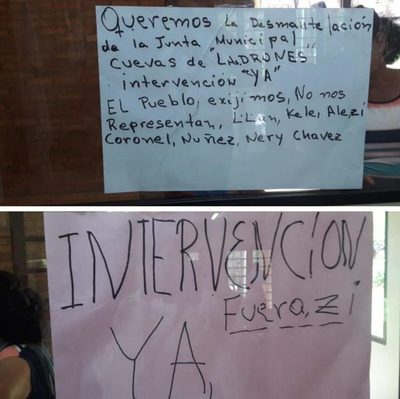 Queremos la Desmantelación
de la Junta Municipal,,
Cuevas de "LADRONES
intervención "YA"
EL Pueblo, exijimos, No nos
Representan, Lilian, Kele, Ale, zi
Coronel, Nuñez, Nery Chavez
INTERVENCION
Fuera, zi
YA,